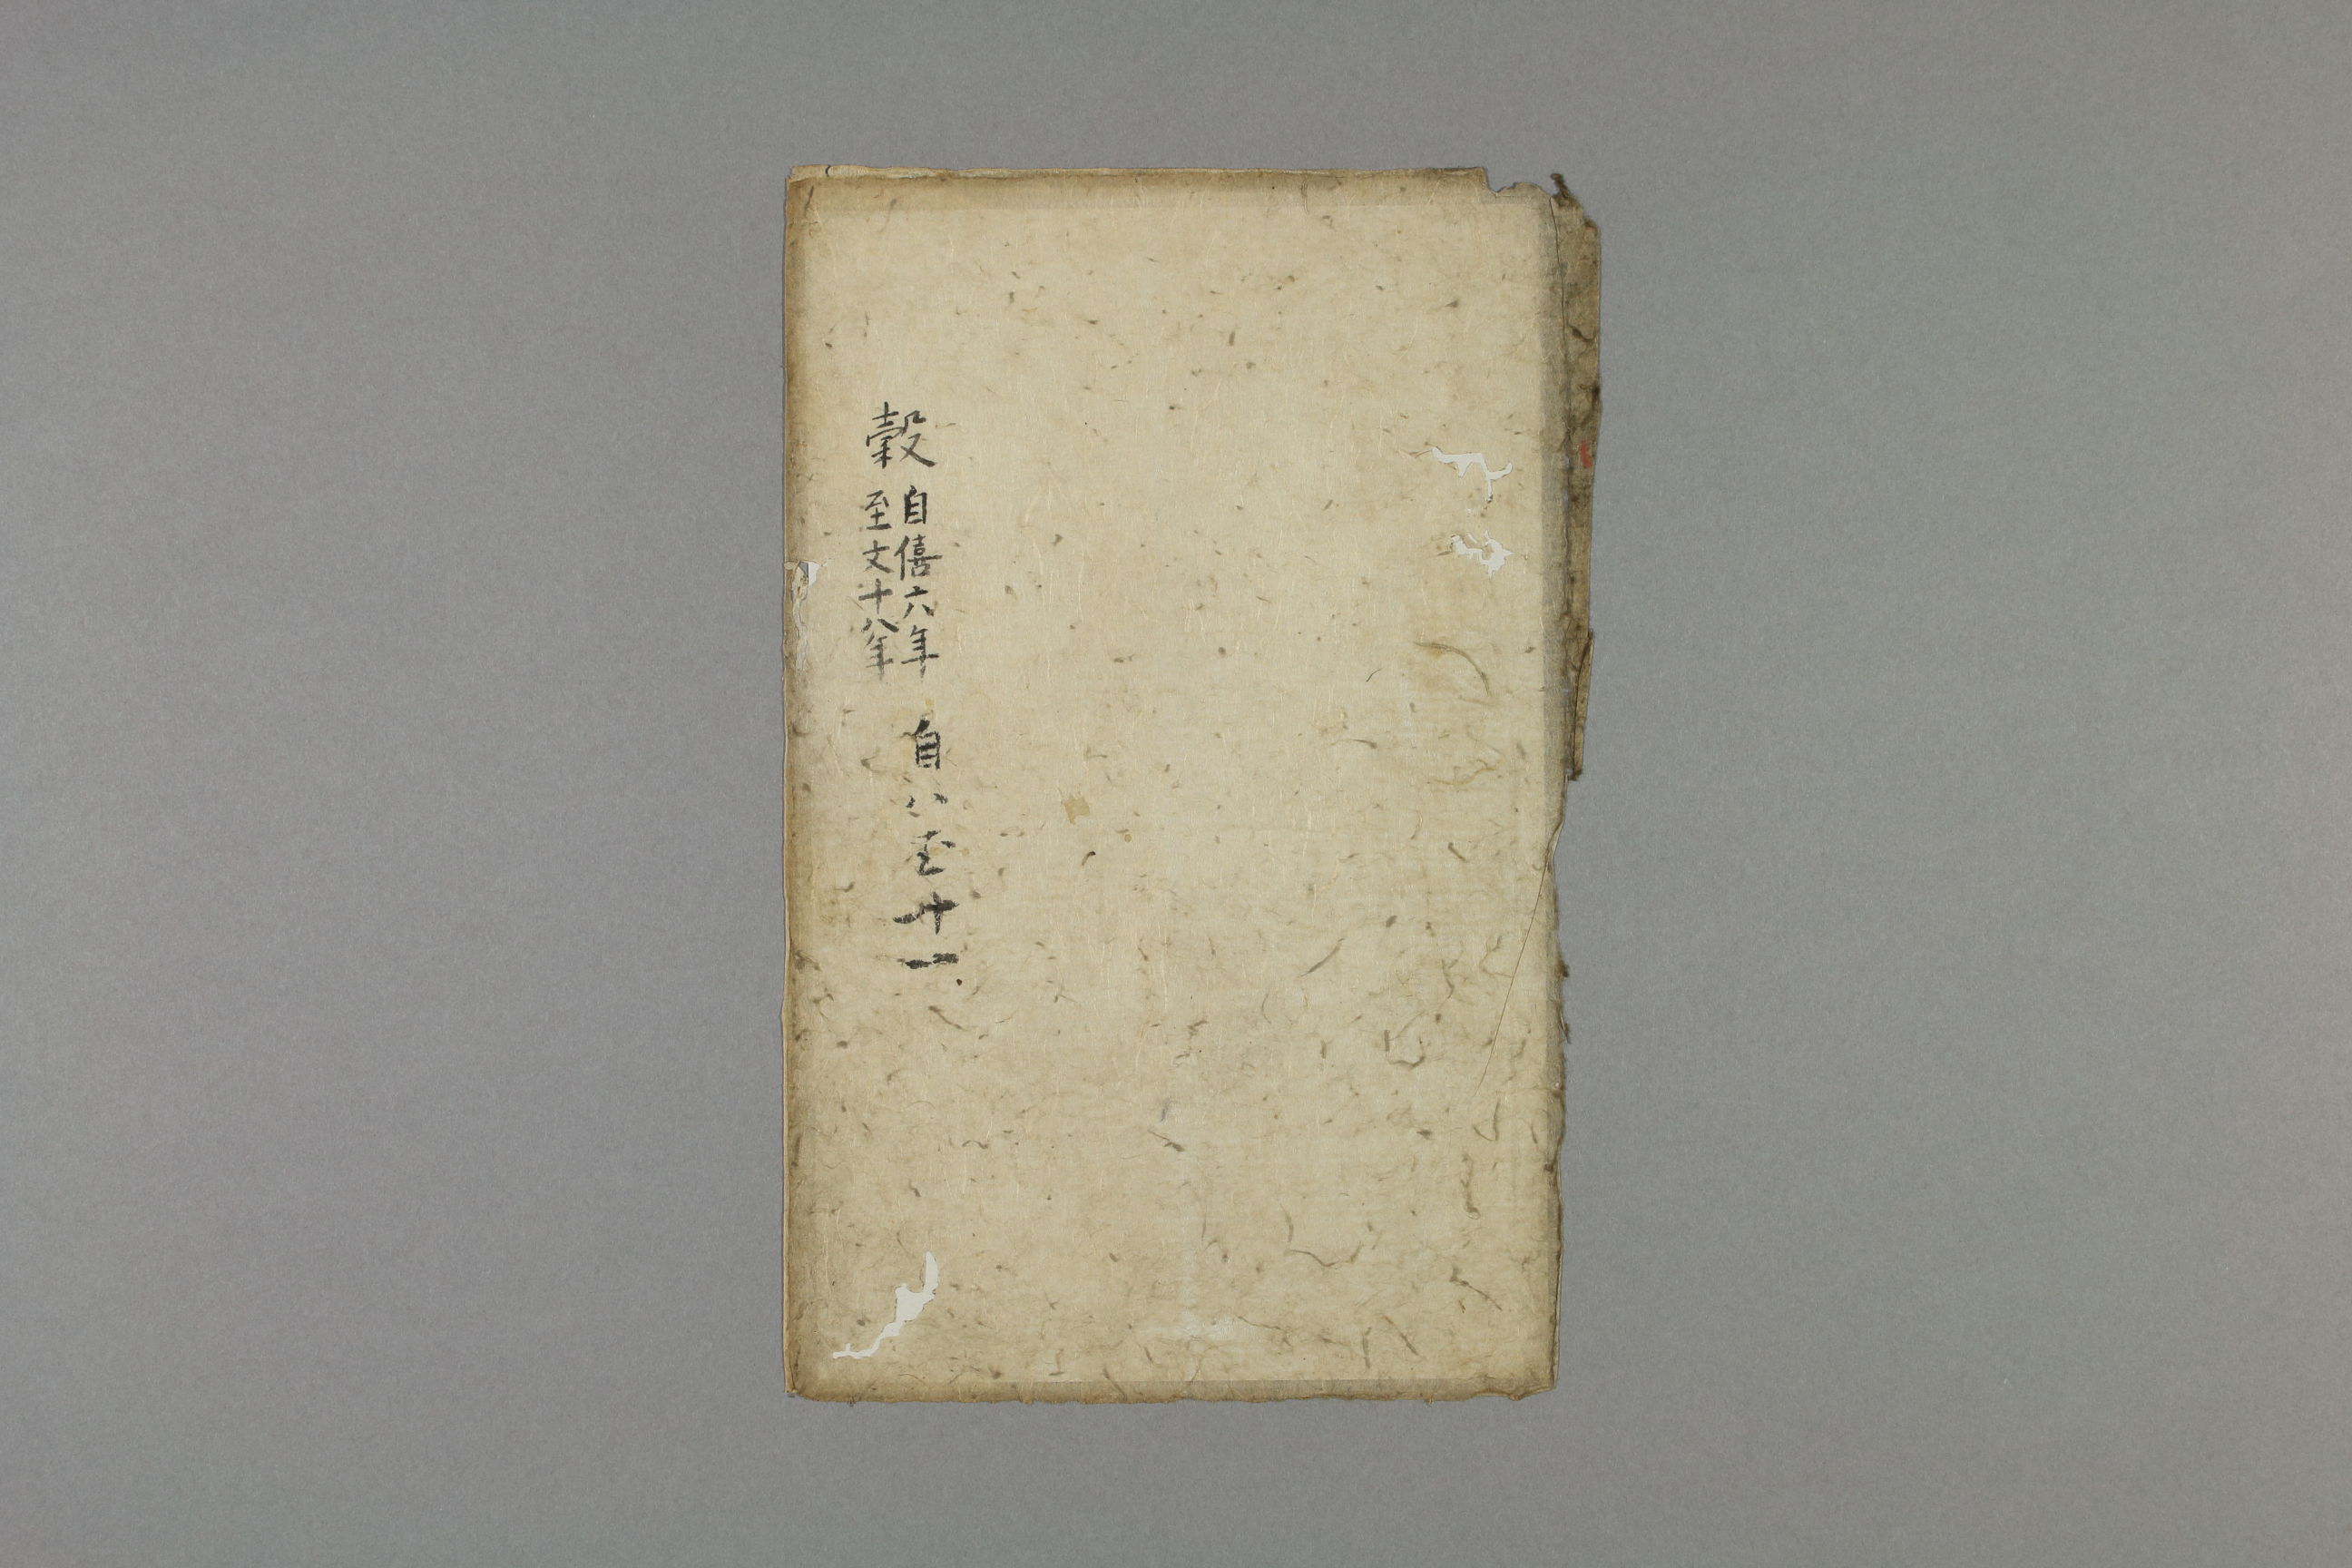 穀
自僖六年
至文十八年
自八至十一